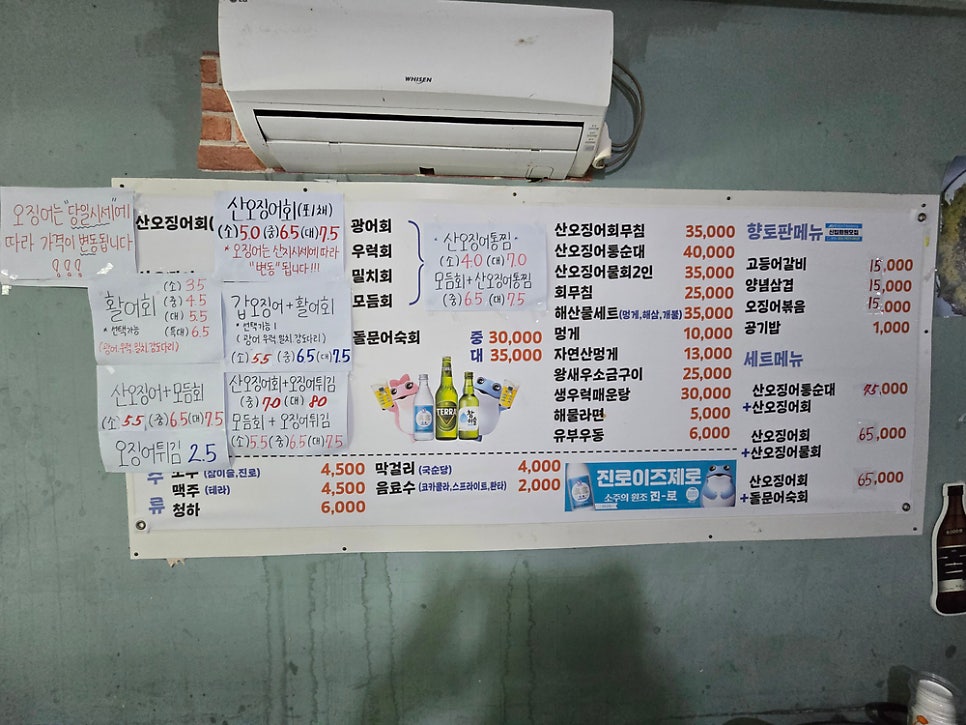 WHISEN
오징어는 "당일시세"에
따라 가격이 변동됩니다
!!!
산오징어회(
산오징어회(포/채)
(소)5.0 (중)6.5 (대)7.5
* 오징어는 산지시세에 따라
"변동"됩니다!!!
활어회
* 선택가능
(소) 3.5
(중) 4.5
(대) 5.5
(특대) 6.5
(광어 우럭 밀치 감도다리)
갑오징어+활어회
* 선택가능!
(광어 우럭 밀치 감도다리)
(소) 5.5 (중) 6.5 (대) 7.5
산오징어+모듬회
(소) 5.5 (중) 6.5 (대) 7.5
오징어튀김 2.5
산오징어회+오징어튀김
(중) 7.0 (대) 8.0
모듬회 + 오징어튀김
(소) 5.5 (중) 6.5 (대) 7.5
광어회
우럭회
밀치회
모듬회
산오징어통찜
(소) 4.0 (대) 7.0
모듬회+산오징어통찜
(중) 6.5 (대) 7.5
돌문어숙회 중 30,000
대 35,000
TERRA
산오징어회무침 35,000
산오징어통순대 40,000
산오징어물회2인 35,000
회무침 25,000
해산물세트(멍게,해삼,개불) 35,000
멍게 10,000
자연산멍게 13,000
왕새우소금구이 25,000
생우럭매운탕 30,000
해물라면 5,000
유부우동 6,000
향토판메뉴
고등어갈비 15,000
양념삼겹 15,000
오징어볶음 15,000
공기밥 1,000
세트메뉴
산오징어통순대
+산오징어회 75,000
산오징어회
+산오징어물회 65,000
산오징어회
+돌문어숙회 65,000
주류
소주 (참이슬,진로) 4,500
맥주 (테라) 4,500
청하 6,000
막걸리 (국순당) 4,000
음료수 (코카콜라,스프라이트,환타) 2,000
진로이즈제로
소주의 원조 진-로